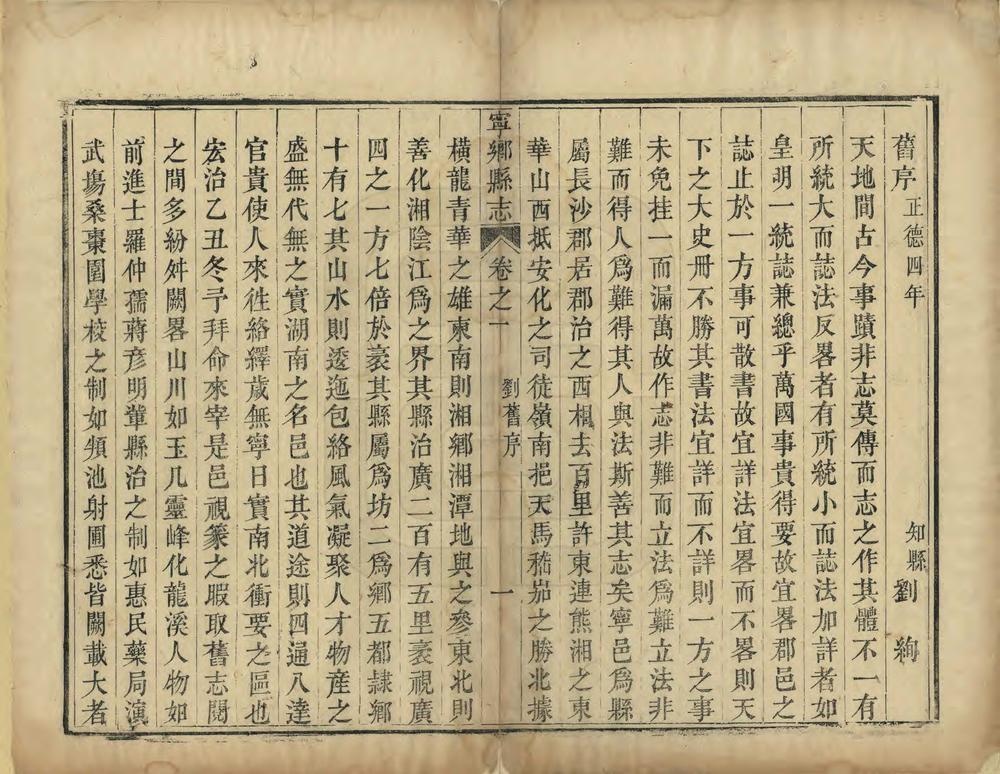 舊序 正德四年 知縣劉絢
天地間古今事蹟非志莫傳而志之作其體不一有
所統大而誌法反畧者有所統小而誌法加詳者如
皇明一統誌兼總乎萬國事貴得要故宜畧郡邑之
誌止於一方事可散書故宜詳法宜畧而不畧則天
下之大史冊不勝其書法宜詳而不詳則一方之事
未免挂一而漏萬故作志非難而立法為難立法非
難而得人為難得其人與法斯善其志矣寧邑為縣
屬長沙郡居郡治之西相去百里許東連熊湘之東
華山西抵安化之司徒嶺南挹天馬嵇茄之勝北據
寧鄉縣志 卷之一 劉舊序 一
橫龍青華之雄東南則湘鄉湘潭地與之參東北則
善化湘陰江為之界其縣治廣二百有五里袤視廣
四之一方七倍於袤其縣屬為坊二為鄉五都隷鄉
十有七其山水則逶迤包絡風氣凝聚人才物產之
盛無代無之實湖南之名邑也其道途則四通八達
官貴使人來徃絡繹歲無寧日實南北衝要之區也
宏治乙丑冬予拜命來宰是邑視篆之暇取舊志閱
之間多紛舛闕畧山川如玉几靈峰化龍溪人物如
前進士羅仲孺蔣彥明輩縣治之制如惠民藥局演
武塲桑棗園學校之制如頖池射圃悉皆闕載大者